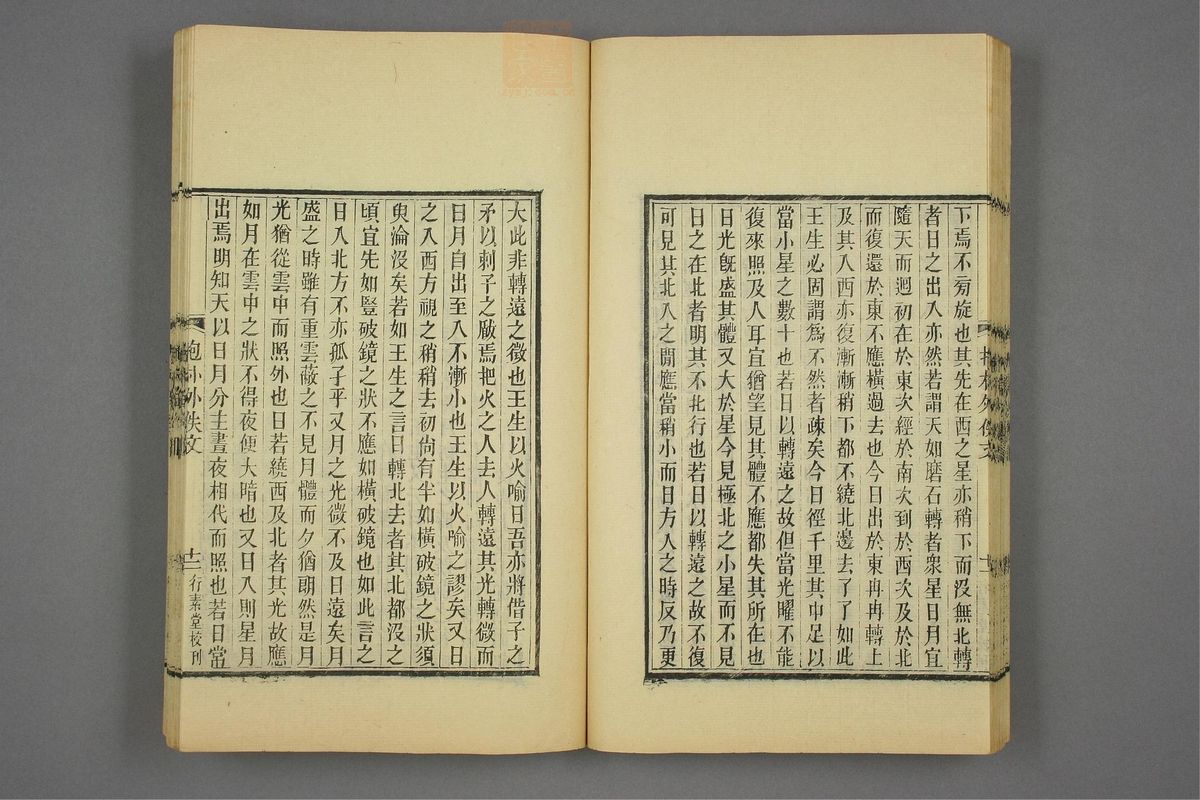 下焉不旁旋也其先在酉之星亦稍下而沒無北轉
者日之出入亦然若謂天如磨石轉者衆星日月宜
隨天而迴初在於東次經於南次到於西次及於北
而復還於東不應橫過去也今日出於東冉冉轉上
及其入西亦復漸漸稍下都不繞北邊去了了如此
王生必固謂爲不然者疎矣今日徑千里其中足以
當小星之數十也若日以轉遠之故但當光曜不能
復來照及人耳宜猶望見其體不應都失其所在也
日光旣盛其體又大於星今見極北之小星而不見
日之在北者明其不北行也若日以轉遠之故不復
可見其北入之閒應當稍小而日方入之時反乃更
大此非轉遠之徵也王生以火喻日吾亦將借子之
矛以刺子之敭焉把火之人去人轉遠其光轉微而
日月自出至入不漸小也王生以火喻之謬矣又日
之入西方視之稍稍去初尚有半如橫破鏡之狀須
臾淪沒矣若如王生之言日轉北去者其北都沒之
頃宜先如豎破鏡之狀不應如橫破鏡也如此言之
日入北方不亦孤孑乎又月之光微不及日遠矣月
盛之時雖有重雲蔽之不見月體而夕猶朗然是月
光猶從雲中而照外也日若繞西及北者其光故應
如月在雲中之狀不得夜便大暗也又日入則星月
出焉明知天以日月分主晝夜相代而照也若日當
抱朴外佚文
十二
行素堂校刊